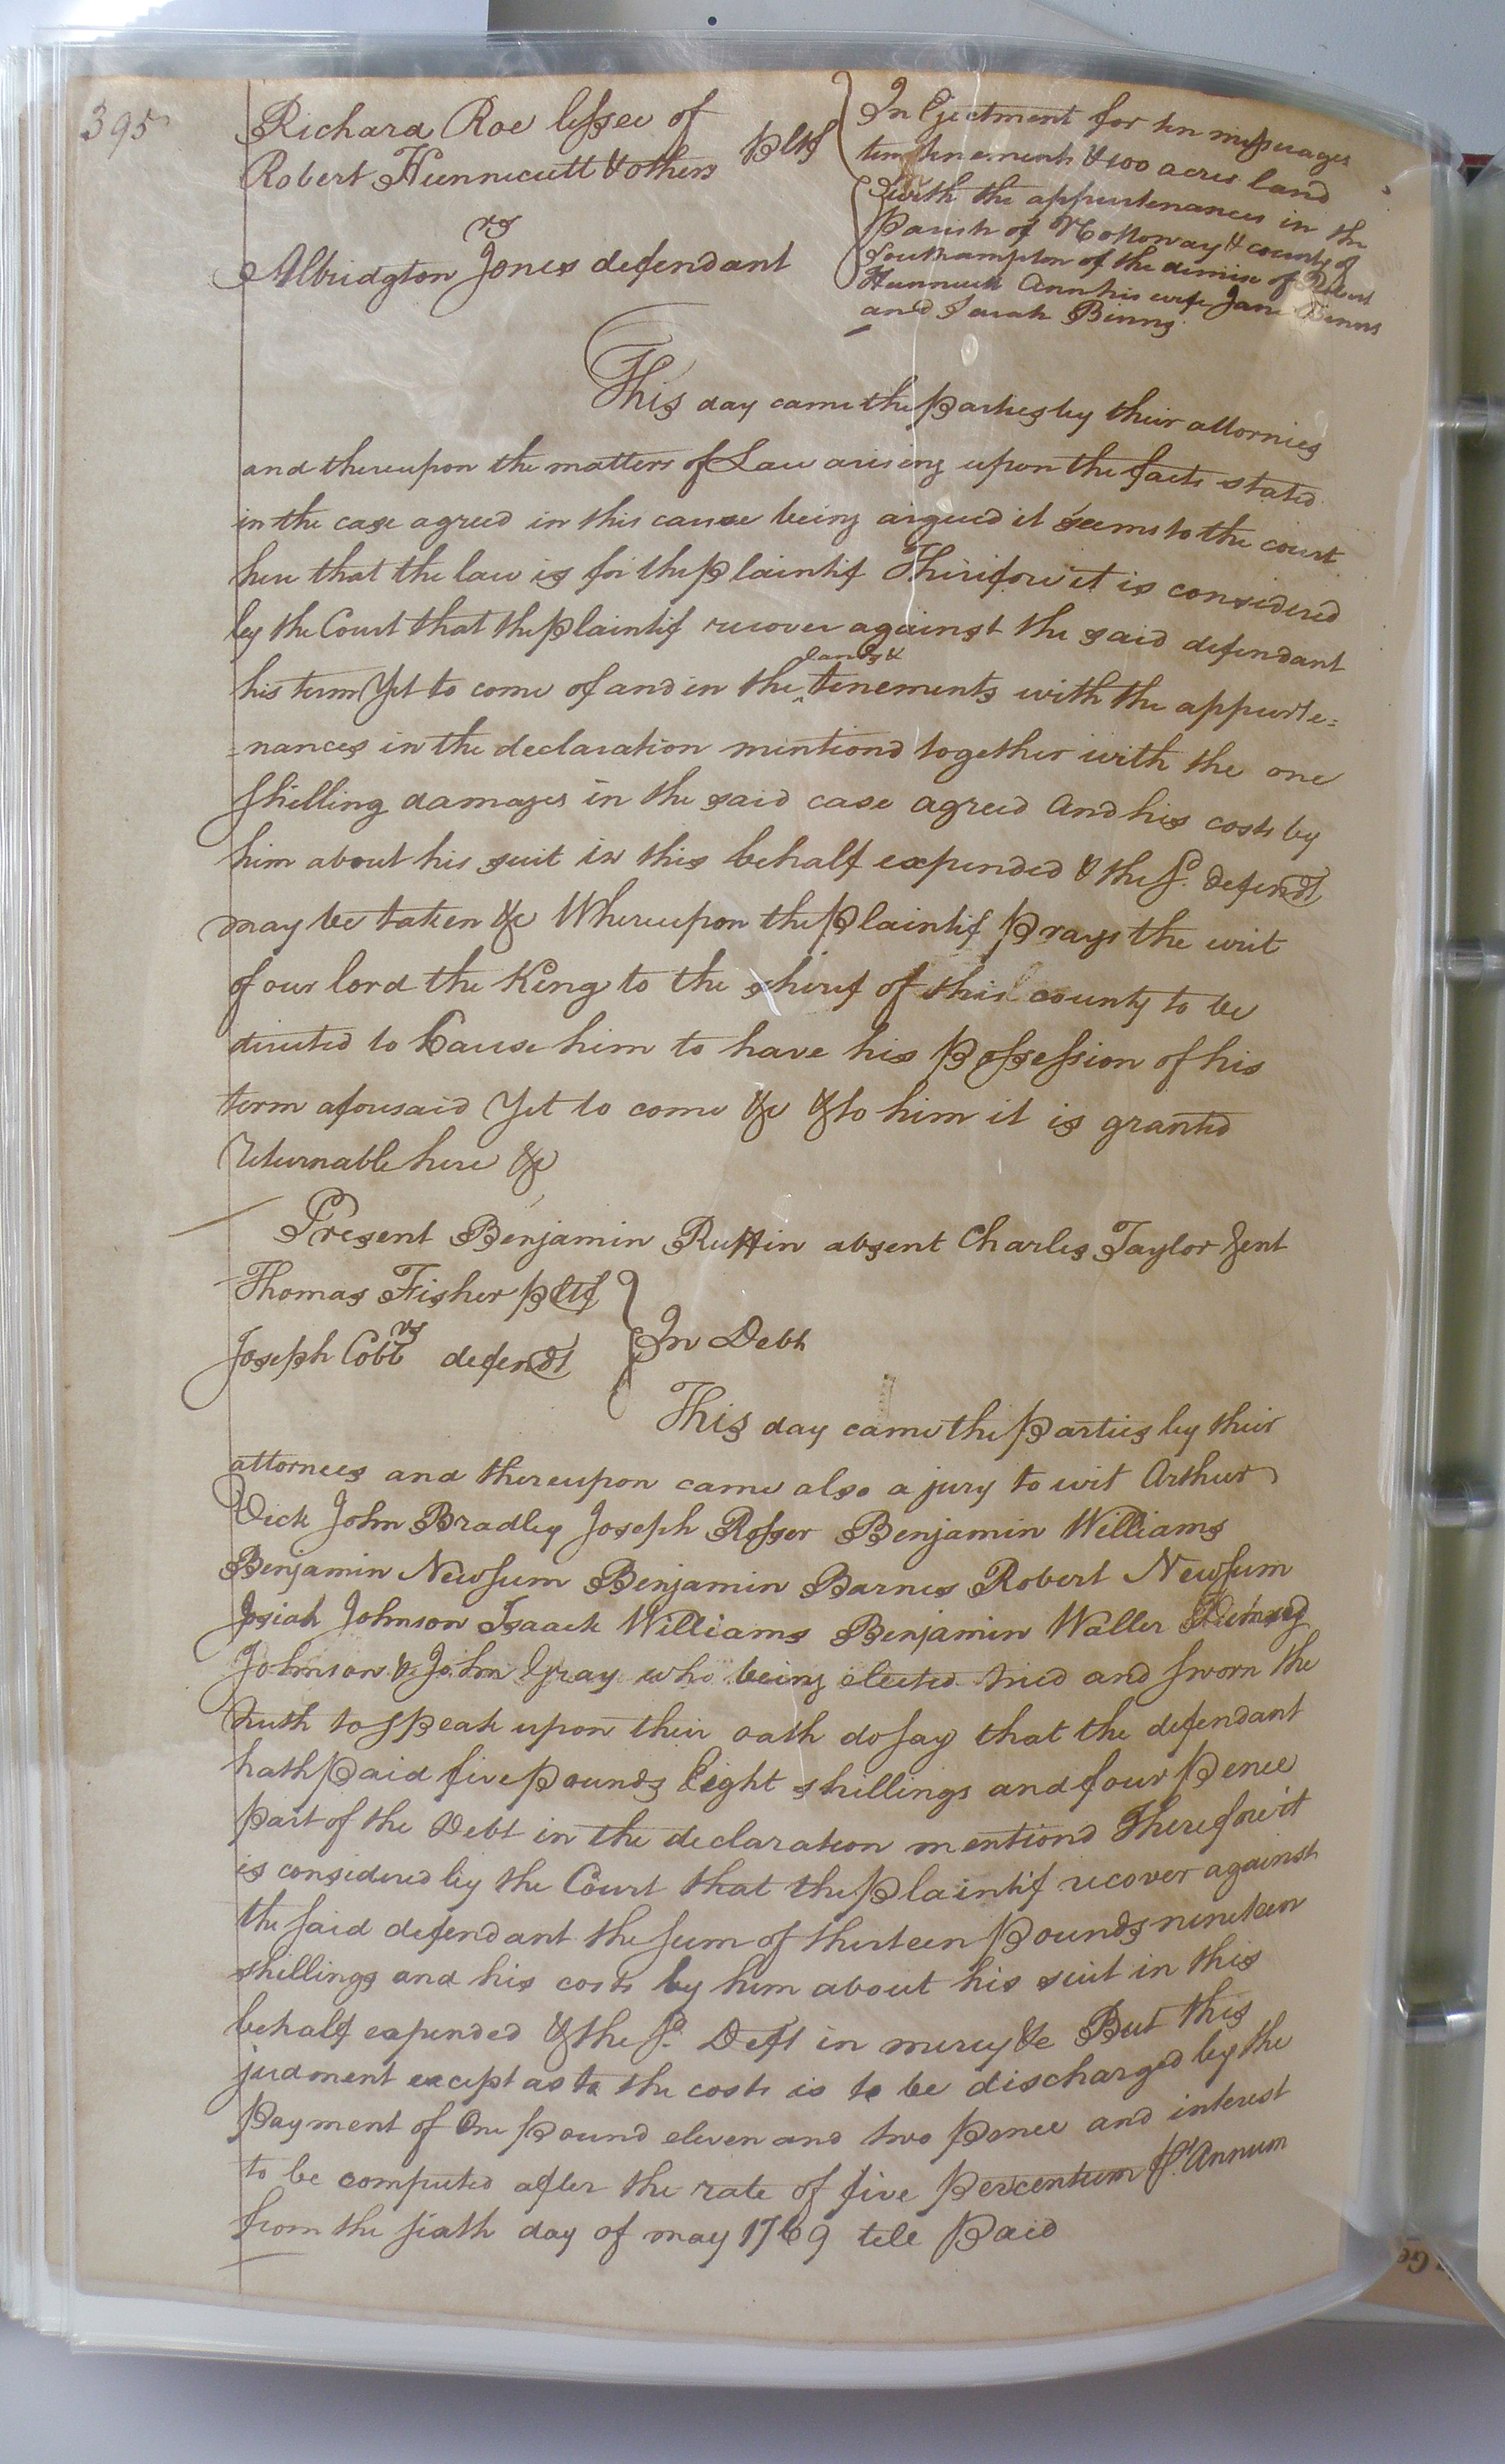 395
Richard Roe lessee of
Robert Hunnicutt & others pltf
vs
Albridgton Jones defendant
In Ejectment for ten messuages
ten tenements & 100 acres land
with the appurtenances in the
Parish of Nottoway & county of
Southampton of the demise of Robert
Hunnicutt Ann his wife Jane Binns
and Sarah Binns
This day came the parties by their attornies
and thereupon the matters of Law arising upon the facts stated
in the case agreed in this cause being argued it seems to the court
here that the law is for the plaintif Therefore it is considered
by the Court that the plaintif recover against the said defendant
his term Yet to come of and in the lands & tenements with the appurte=
-nances in the declaration mentiond together with the one
shilling damages in the said case agreed and his costs by
him about his suit in this behalf expended & the sd. defendt
may be taken &c Whereupon the plaintif prays the writ
of our lord the King to the sherif of this county to be
directed to Cause him to have his possession of his
term aforesaid Yet to come &c & to him it is granted
returnable here &c
Present Benjamin Ruffin absent Charles Taylor Gent
Thomas Fisher pltf
vs
Joseph Cobb defendt
In Debt
This day came the parties by their
attornees and thereupon came also a jury to wit Arthur
Vick John Bradley Joseph Rosser Benjamin Williams
Benjamin Newsum Benjamin Barnes Robert Newsum
Josiah Johnson Isaack Williams Benjamin Waller
Johnson & John Gray who being elected tried and sworn the
truth to speak upon their oath do say that the defendant
hath paid five pounds Eight shillings and four pence
part of the Debt in the declaration mentiond Therefore it
is considered by the Court that the plaintif recover against
the said defendant the sum of thirteen pounds nineteen
shillings and his costs by him about his suit in this
behalf expended & the sd. Deft in mercy &c But this
judment except as to the costs is to be discharged by the
payment of One pound eleven and two pence and interest
to be computed after the rate of five percentum pr. Annum
from the sixth day of may 1769 till paid